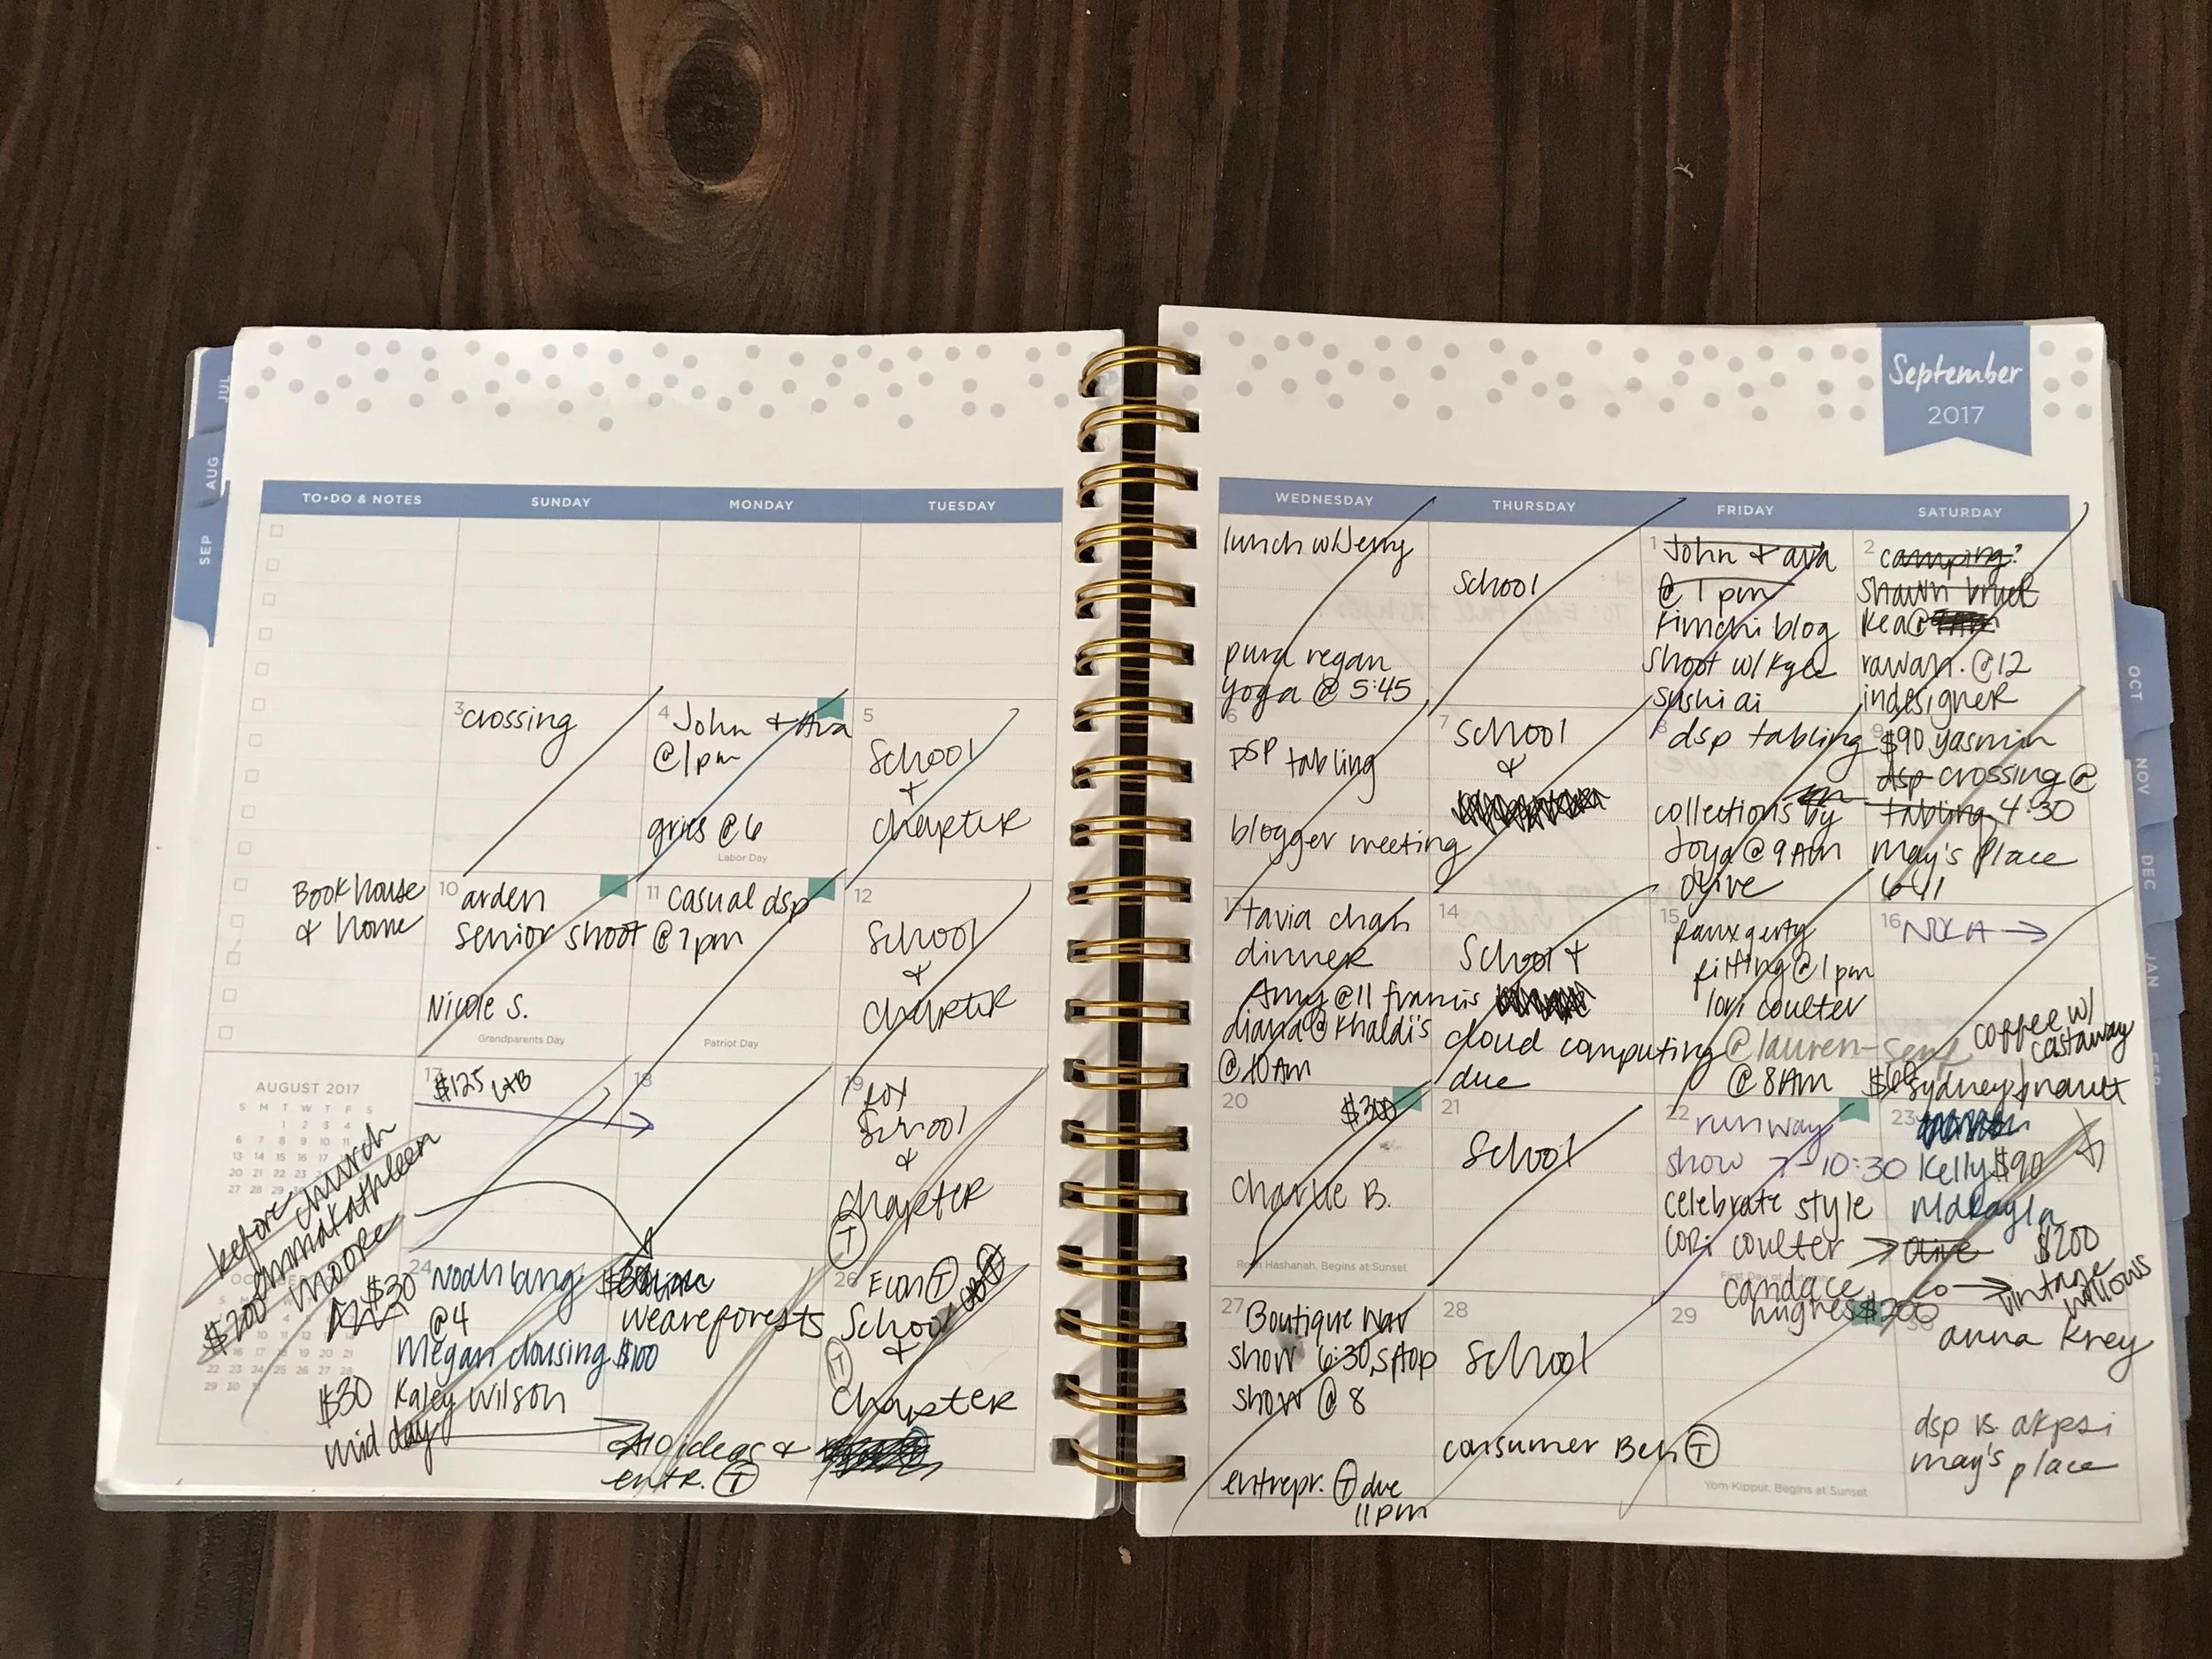 JUL
AUG
SEP
September
2017
TO•DO & NOTES
SUNDAY
MONDAY
TUESDAY
WEDNESDAY
THURSDAY
FRIDAY
SATURDAY
lunch w/Jerry
pura vegan
yoga @ 5:45
School
1
John + ava
@ 1 pm
kimchi blog
shoot w/ Kylee
sushi ai
2
camping?
shawn
Kea@
rawan. @12
indesigner
3
crossing
4
John + Ava
@1pm
gries @ 6
Labor Day
5
School
+
chapter
6
DSP tabling
blogger meeting
7
School
&
8
dsp tabling
collections by
Joya @ 9AM
olive
9
$90 yasmin
dsp crossing @
tabling 4:30
may's place
6-11
Book house
& home
10
arden
senior shoot
Nicole S.
Grandparents Day
11
casual dsp
@ 7pm
Patriot Day
12
School
&
chapter
13
tavia chan
dinner
Amy @11 francis
diana @ Khaldi's
@ 10AM
14
School +
cloud computing
due
15
fitting @ 1pm
lori coulter
@lauren-
@ 8AM
16
coffee w/
castaway
AUGUST 2017
S M T W T F S
1 2 3 4
6 7 8 9 10 11
13 14 15 16 17 18
20 21 22 23
27 28 29
before church
emmakathleen
moore
$200
17
$125
18
19
School
&
chapter
T
20
$300
Charlie B.
Rosh Hashanah, Begins at Sunset
21
School
22
runway
show 7-10:30
celebrate style
lori coulter
candace
hughes $200
$60 sydney
23
Kelly $90
Makayla
olive
$200
vintage
willows
24
$30
Noah lang
@4
Megan clousing $100
$30 Kaley Wilson
mid day
weareforests
10 ideas &
entr. T
26
Econ T
School
&
T
chapter
27
Boutique Nav
show 6:30, stop
show @ 8
entrepr. T due
11pm
28
School
consumer Beh T
29
Yom Kippur, Begins at Sunset
30
anna Krey
dsp vs. akpsi
may's place
OCT
NOV
DEC
JAN
FEB